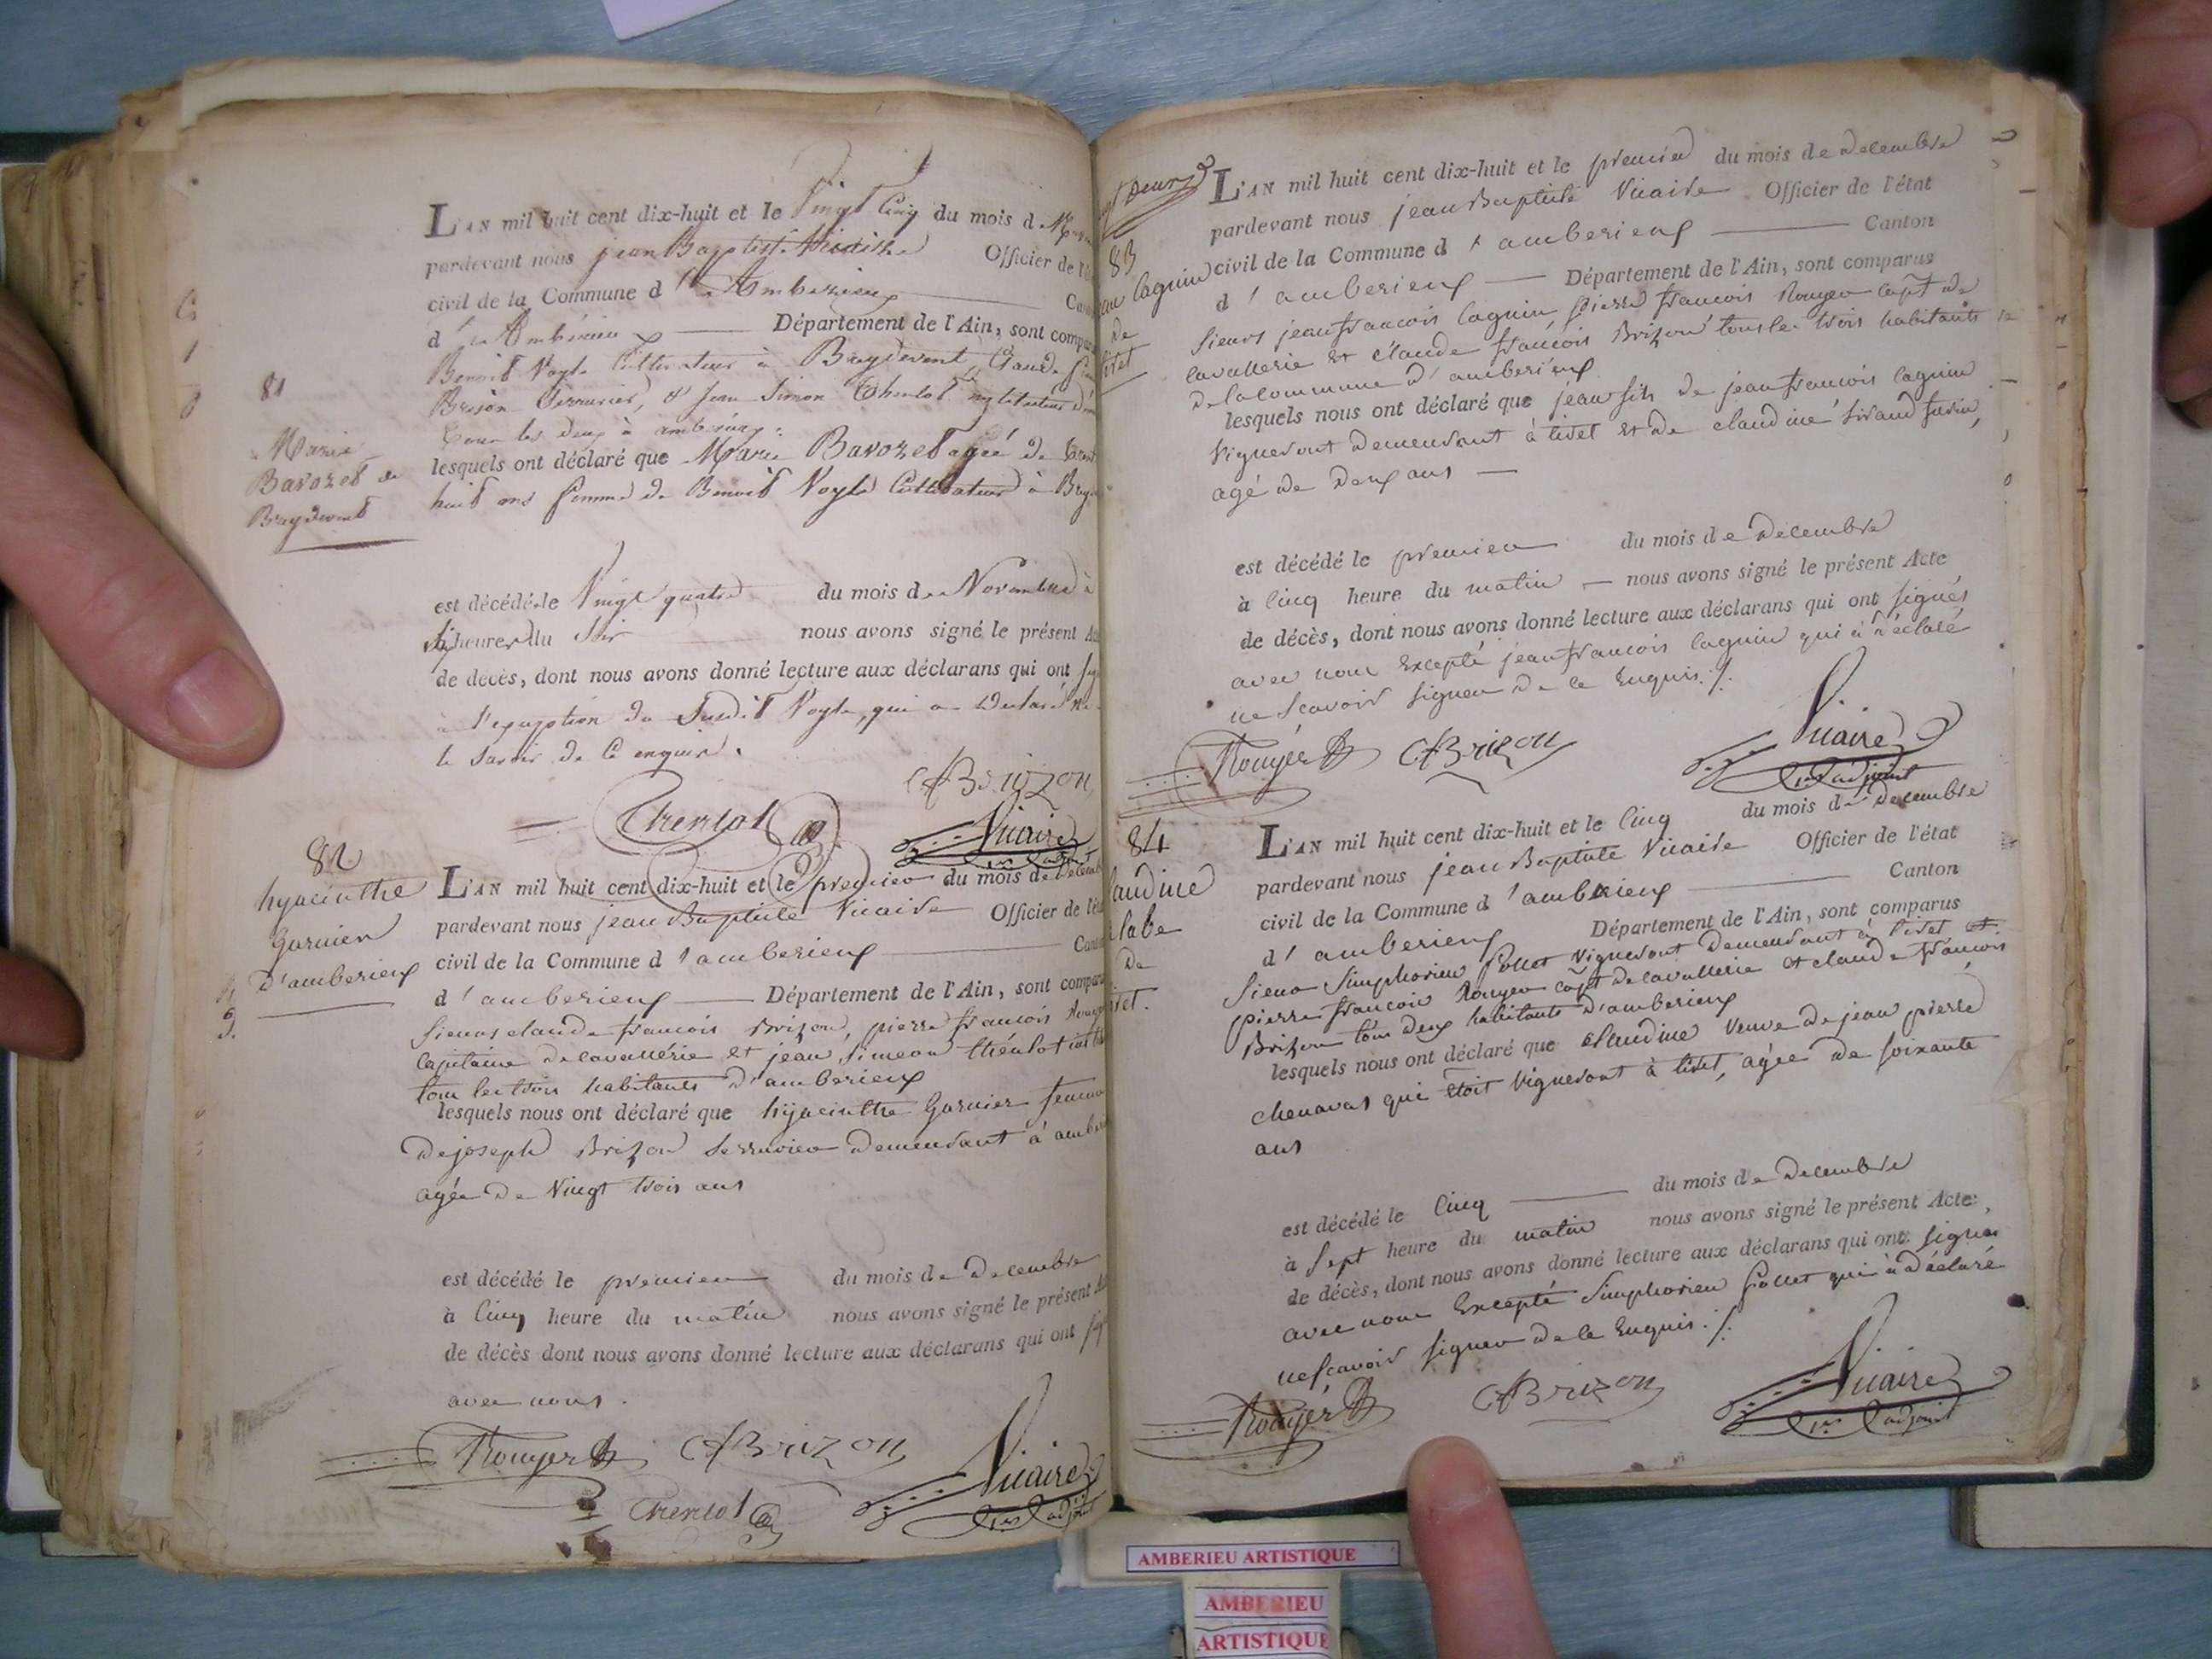 81
Marie
Bavozet de
Breydevent
L'AN mil huit cent dix-huit et le Vingt Cinq du mois de
pardevant nous jean Baptiste Vicaire Officier de
civil de la Commune d' Amberieux
d' Amberieux Département de l'Ain, sont
Benoit Noyle Cultivateur à Breydevent Claude
Brison Serrurier, & Jean Simon Thenlot instituteur
tous les deux à amberieux
lesquels ont déclaré que Marie Bavozet agée de
huit ans femme de Benoit Noyle Cultivateur à
est décédé le Vingt quatre du mois de Novembre à
Six heures du Soir nous avons signé le présent
de décès, dont nous avons donné lecture aux déclarans qui ont
à l'exeption du Susdit Noyle, qui a déclaré ne
le savoir de ce enquis.
CfBrizon
Thenlot
Vicaire
1er adjoint
82
hyacinthe
Garnier
D'amberieux
L'AN mil huit cent dix-huit et le premier du mois de
pardevant nous jean Baptiste Vicaire Officier de
civil de la Commune d'amberieux
d'amberieux Département de l'Ain, sont
Sieurs claude francois Brizon, pierre francois
Capitaine de cavallérie et jean Simeon thénlot
tous les trois habitants d'amberieux
lesquels nous ont déclaré que hyacinthe Garnier femme
de joseph Brizon Serrurier demeurant à
agée de Vingt trois ans
est décédé le premier du mois de Decembre
à Cinq heure du matin nous avons signé le présent
de décès dont nous avons donné lecture aux déclarans qui ont
avec nous.
Rouyer CfBrizon Vicaire
Thenlot 1er adjoint
83
laguin
de
tiret
L'AN mil huit cent dix-huit et le premier du mois de Decembre
pardevant nous jean Baptiste Vicaire Officier de l'état
civil de la Commune d'amberieux Canton
d'amberieux Département de l'Ain, sont comparus
Sieurs jean francois laguin pierre francois Rouyer capt de
cavallerie et claude francois Brizon tous les trois habitants
de la commune d'amberieux
lesquels nous ont déclaré que jean fils de jean francois laguin
Vigneront demeurant à tiret et de claudine sirand
agé de deux ans
est décédé le premier du mois de Decembre
à Cinq heure du matin nous avons signé le présent Acte
de décès, dont nous avons donné lecture aux déclarans qui ont signés
avec nous Excepté jean francois laguin qui à déclaré
ne Scavoir signer de ce Enquis ./.
Rouyer CfBrizon Vicaire
1er adjoint
84
L'AN mil huit cent dix-huit et le Cinq du mois de Decembre
pardevant nous jean Baptiste Vicaire Officier de l'état
civil de la Commune d'amberieux Canton
d'amberieux Département de l'Ain, sont comparus
Sieur Simphorien follet Vigneront demeurant à tiret et
pierre francois Rouyer capt de cavallerie et claude francois
Brizon tous deux habitants d'amberieux
lesquels nous ont déclaré que claudine Veuve de jean pierre
chenavas qui étoit Vigneront à tiret, agée de soixante
ans
est décédé le Cinq du mois de Decembre
à Sept heure du matin nous avons signé le présent Acte
de décès, dont nous avons donné lecture aux déclarans qui ont signés
avec nous Excepté Simphorien follet qui à déclaré
ne Scavoir signer de ce Enquis ./.
Rouyer CfBrizon Vicaire
1er adjoint
AMBERIEU ARTISTIQUE
AMBERIEU
ARTISTIQUE